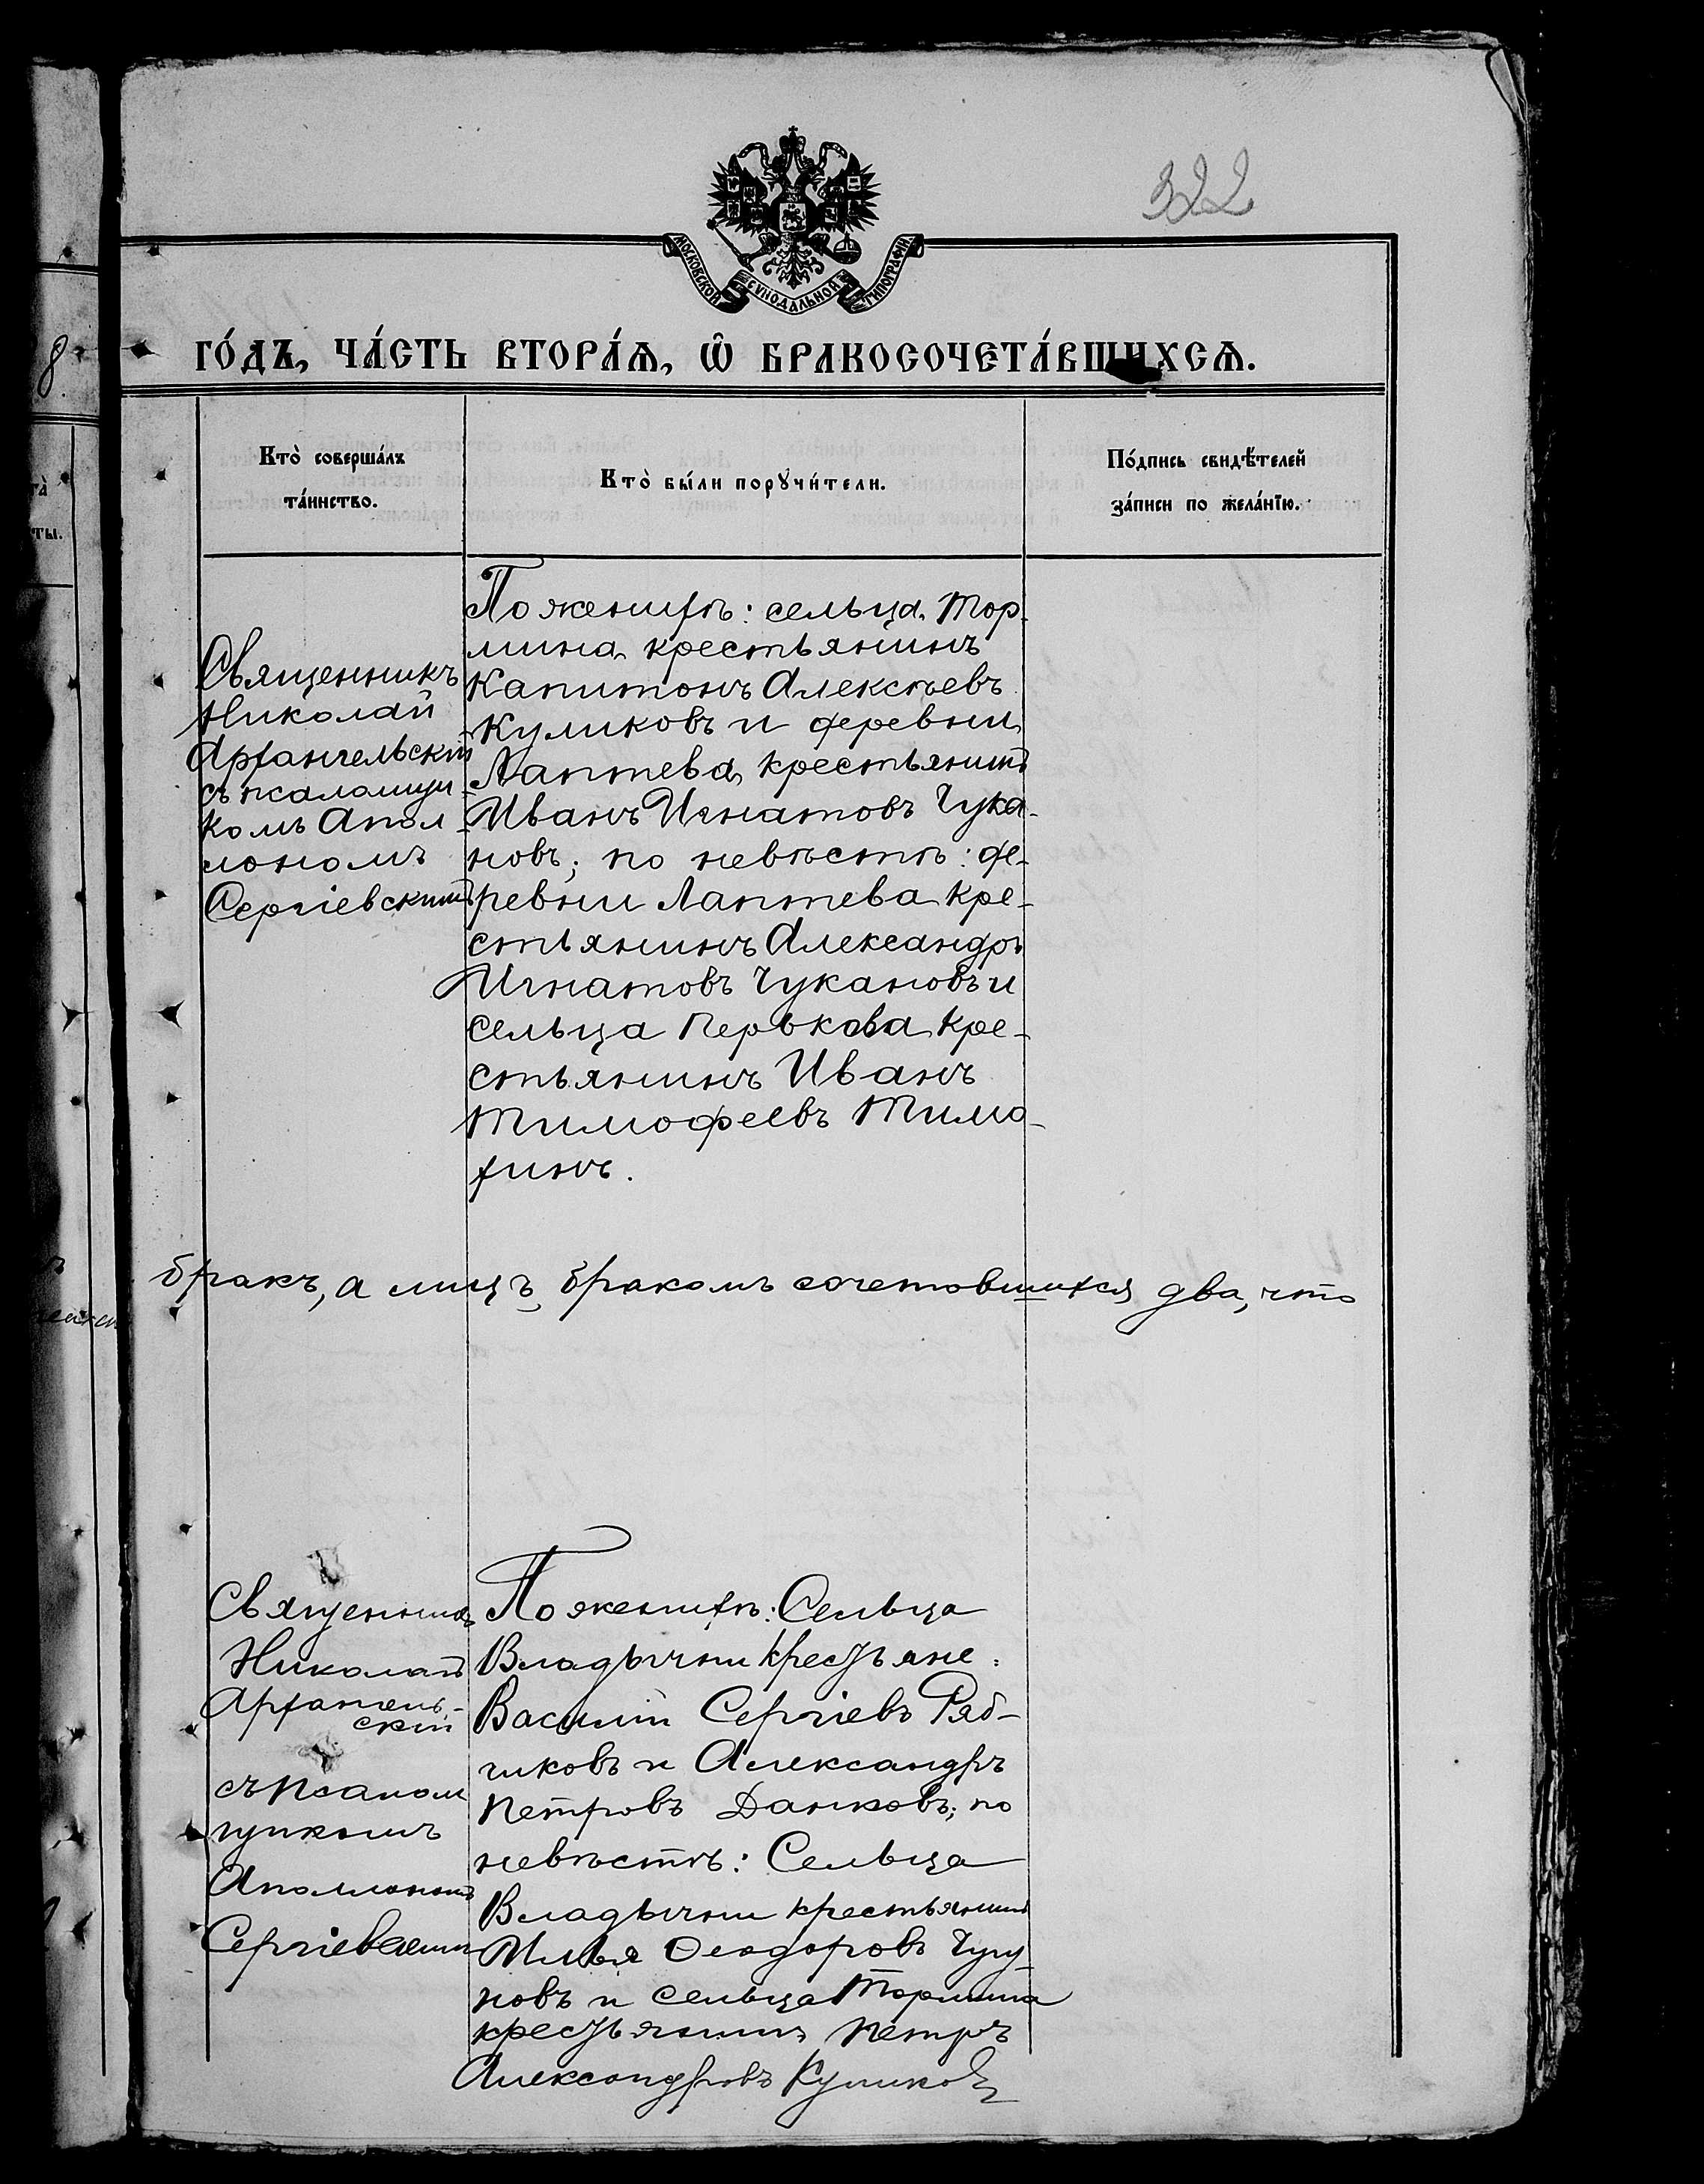 322
МОСКОВСКОЙ СѴНОДАЛЬНОЙ ТИПОГРАФІИ
8
ГО́ДЪ, ЧА́СТЬ ВТОРА́Ѧ, Ѡ҆ БРАКОСОЧЕТА́ВШИХСѦ.
Кто̀ соверша́лъ
та́инство.
Кто̀ бы́ли порꙋчи́тели.
По́дпись свидѣ́телей
за́писи по жела́нїю.
ты.
Священникъ
Николай
Архангельскій
съ псаломщи-
комъ Апол-
лономъ
Сергіевскимъ
По женихѣ: сельца Тор-
мина крестьянинъ
Капитонъ Алексѣевъ
Куликовъ и деревни
Лаптева крестьянинъ
Иванъ Игнатовъ Чука-
новъ; по невѣстѣ: де-
ревни Лаптева кре-
стьянинъ Александръ
Игнатовъ Чукановъ и
сельца Перькова кре-
стьянинъ Иванъ
Тимофеевъ Тимо-
хинъ.
бракъ, а лицъ бракомъ сочетовшихся два, что
Священникъ
Николай
Архангель-
скій
съ псалом
щикомъ
Аполлономъ
Сергіевскимъ
По женихѣ: Сельца
Владычни крестьяне:
Василій Сергіевъ Ряб-
чиковъ и Александръ
Петровъ Данковъ; по
невѣстѣ: Сельца
Владычни крестьянинъ
Илья Ѳеодоровъ Чугу-
новъ и сельца Тормина
крестьянинъ Петръ
Александровъ Куликовъ